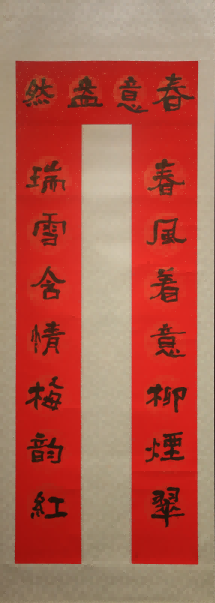 春意盎然
春風着意柳煙翠
瑞雪含情梅韵紅